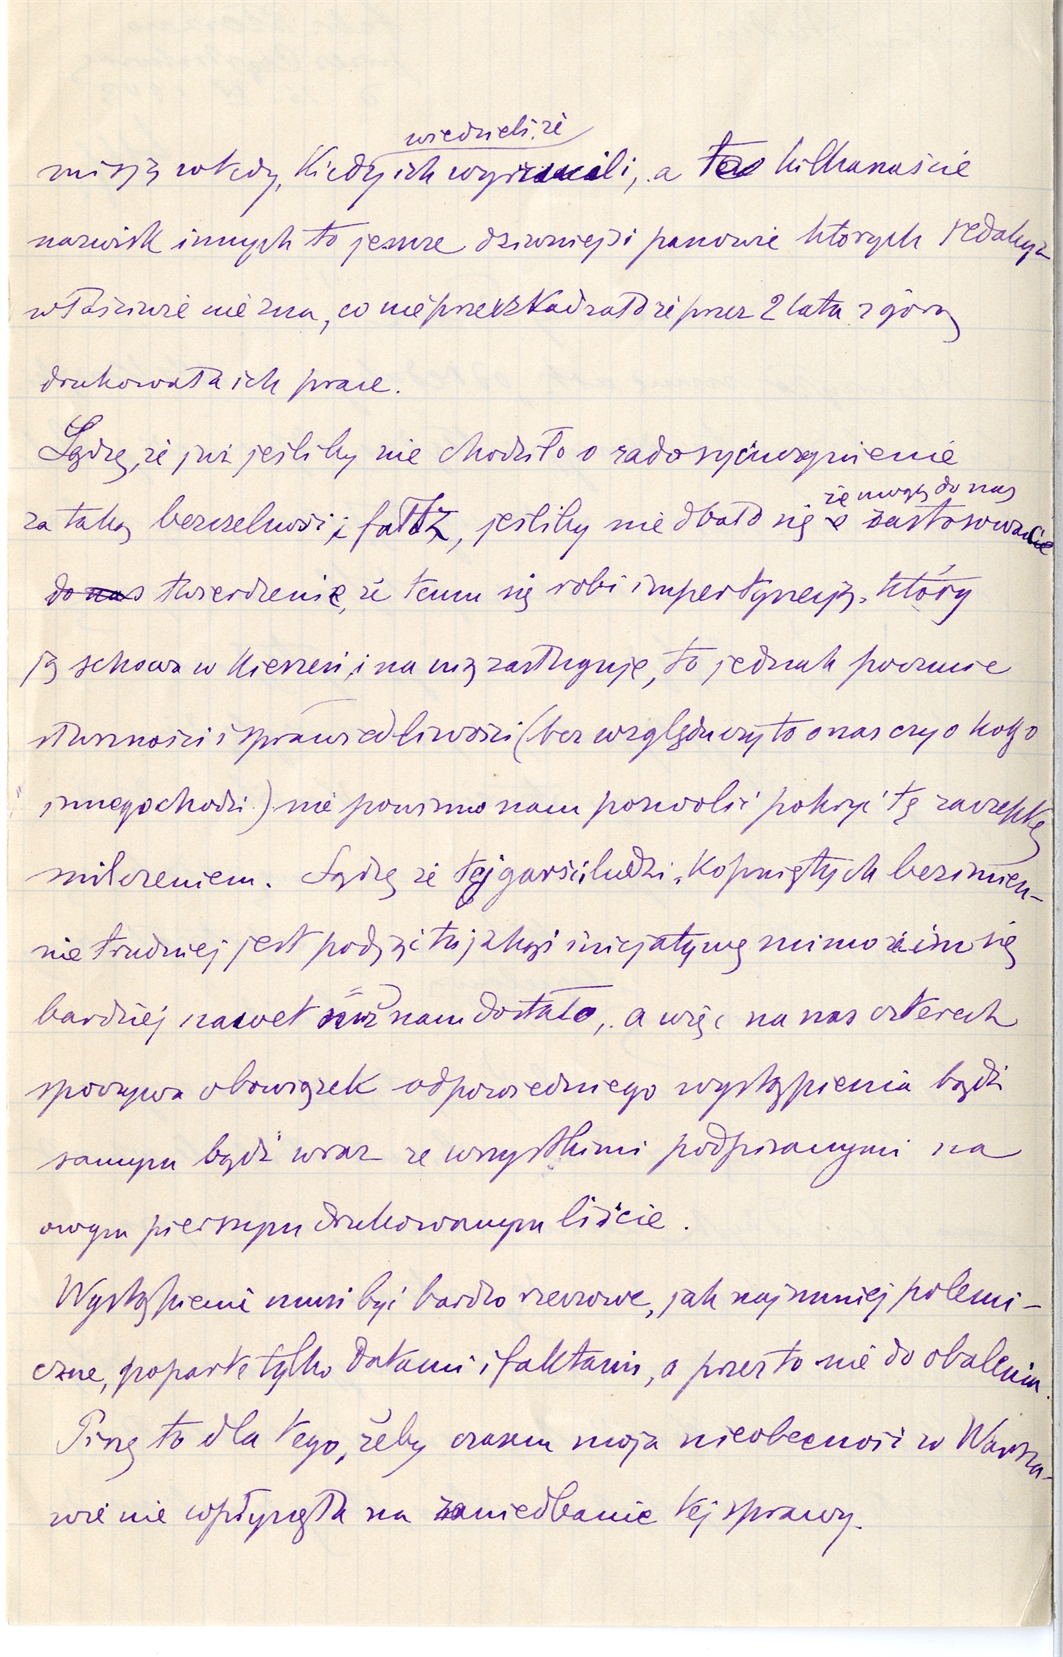 wiedzieli, że
misją wtedy, kiedy ich wyrzucili, a te kilkanaście
nazwisk innych to jeszcze dziwniejsi panowie których redakcja
właściwie nie zna, co nie przeszkadzało że przez 2 lata z górą
drukowała ich prace.
Sądzę, że już jeśliby nie chodziło o zadosyćuczynienie
że mogą do nas
za taką bezczelność i fałsz, jeśliby nie dbało się o zastosowanie
do nas twierdzenie, że temu się robi impertynencję, który
ją schowa w kieszeń i na nią zasługuje, to jednak poczucie
słuszności i sprawiedliwości (bez względu czy to o nas czy o kogo
innego chodzi) nie powinno nam pozwolić pokryć tą zaczepkę
milczeniem. Sądzę że tej garści ludzi, kopniętych bezimien-
nie trudniej jest podjąć tu jakąś inicjatywę mimo że im się
bardziej nawet niż nam dostało, a więc na nas czterech
spoczywa obowiązek odpowiedniego wystąpienia bądź
samym bądź wraz ze wszystkimi podpisanymi na
owym pierwszym drukowanym liście.
Wystąpienie musi być bardzo rzeczowe, jak najmniej polemi-
czne, poparte tylko datami i faktami, a przez to nie do obalenia.
Piszę to dla tego, żeby czasem moja nieobecność w Warsza-
wie nie wpłynęła na zaniedbanie tej sprawy.